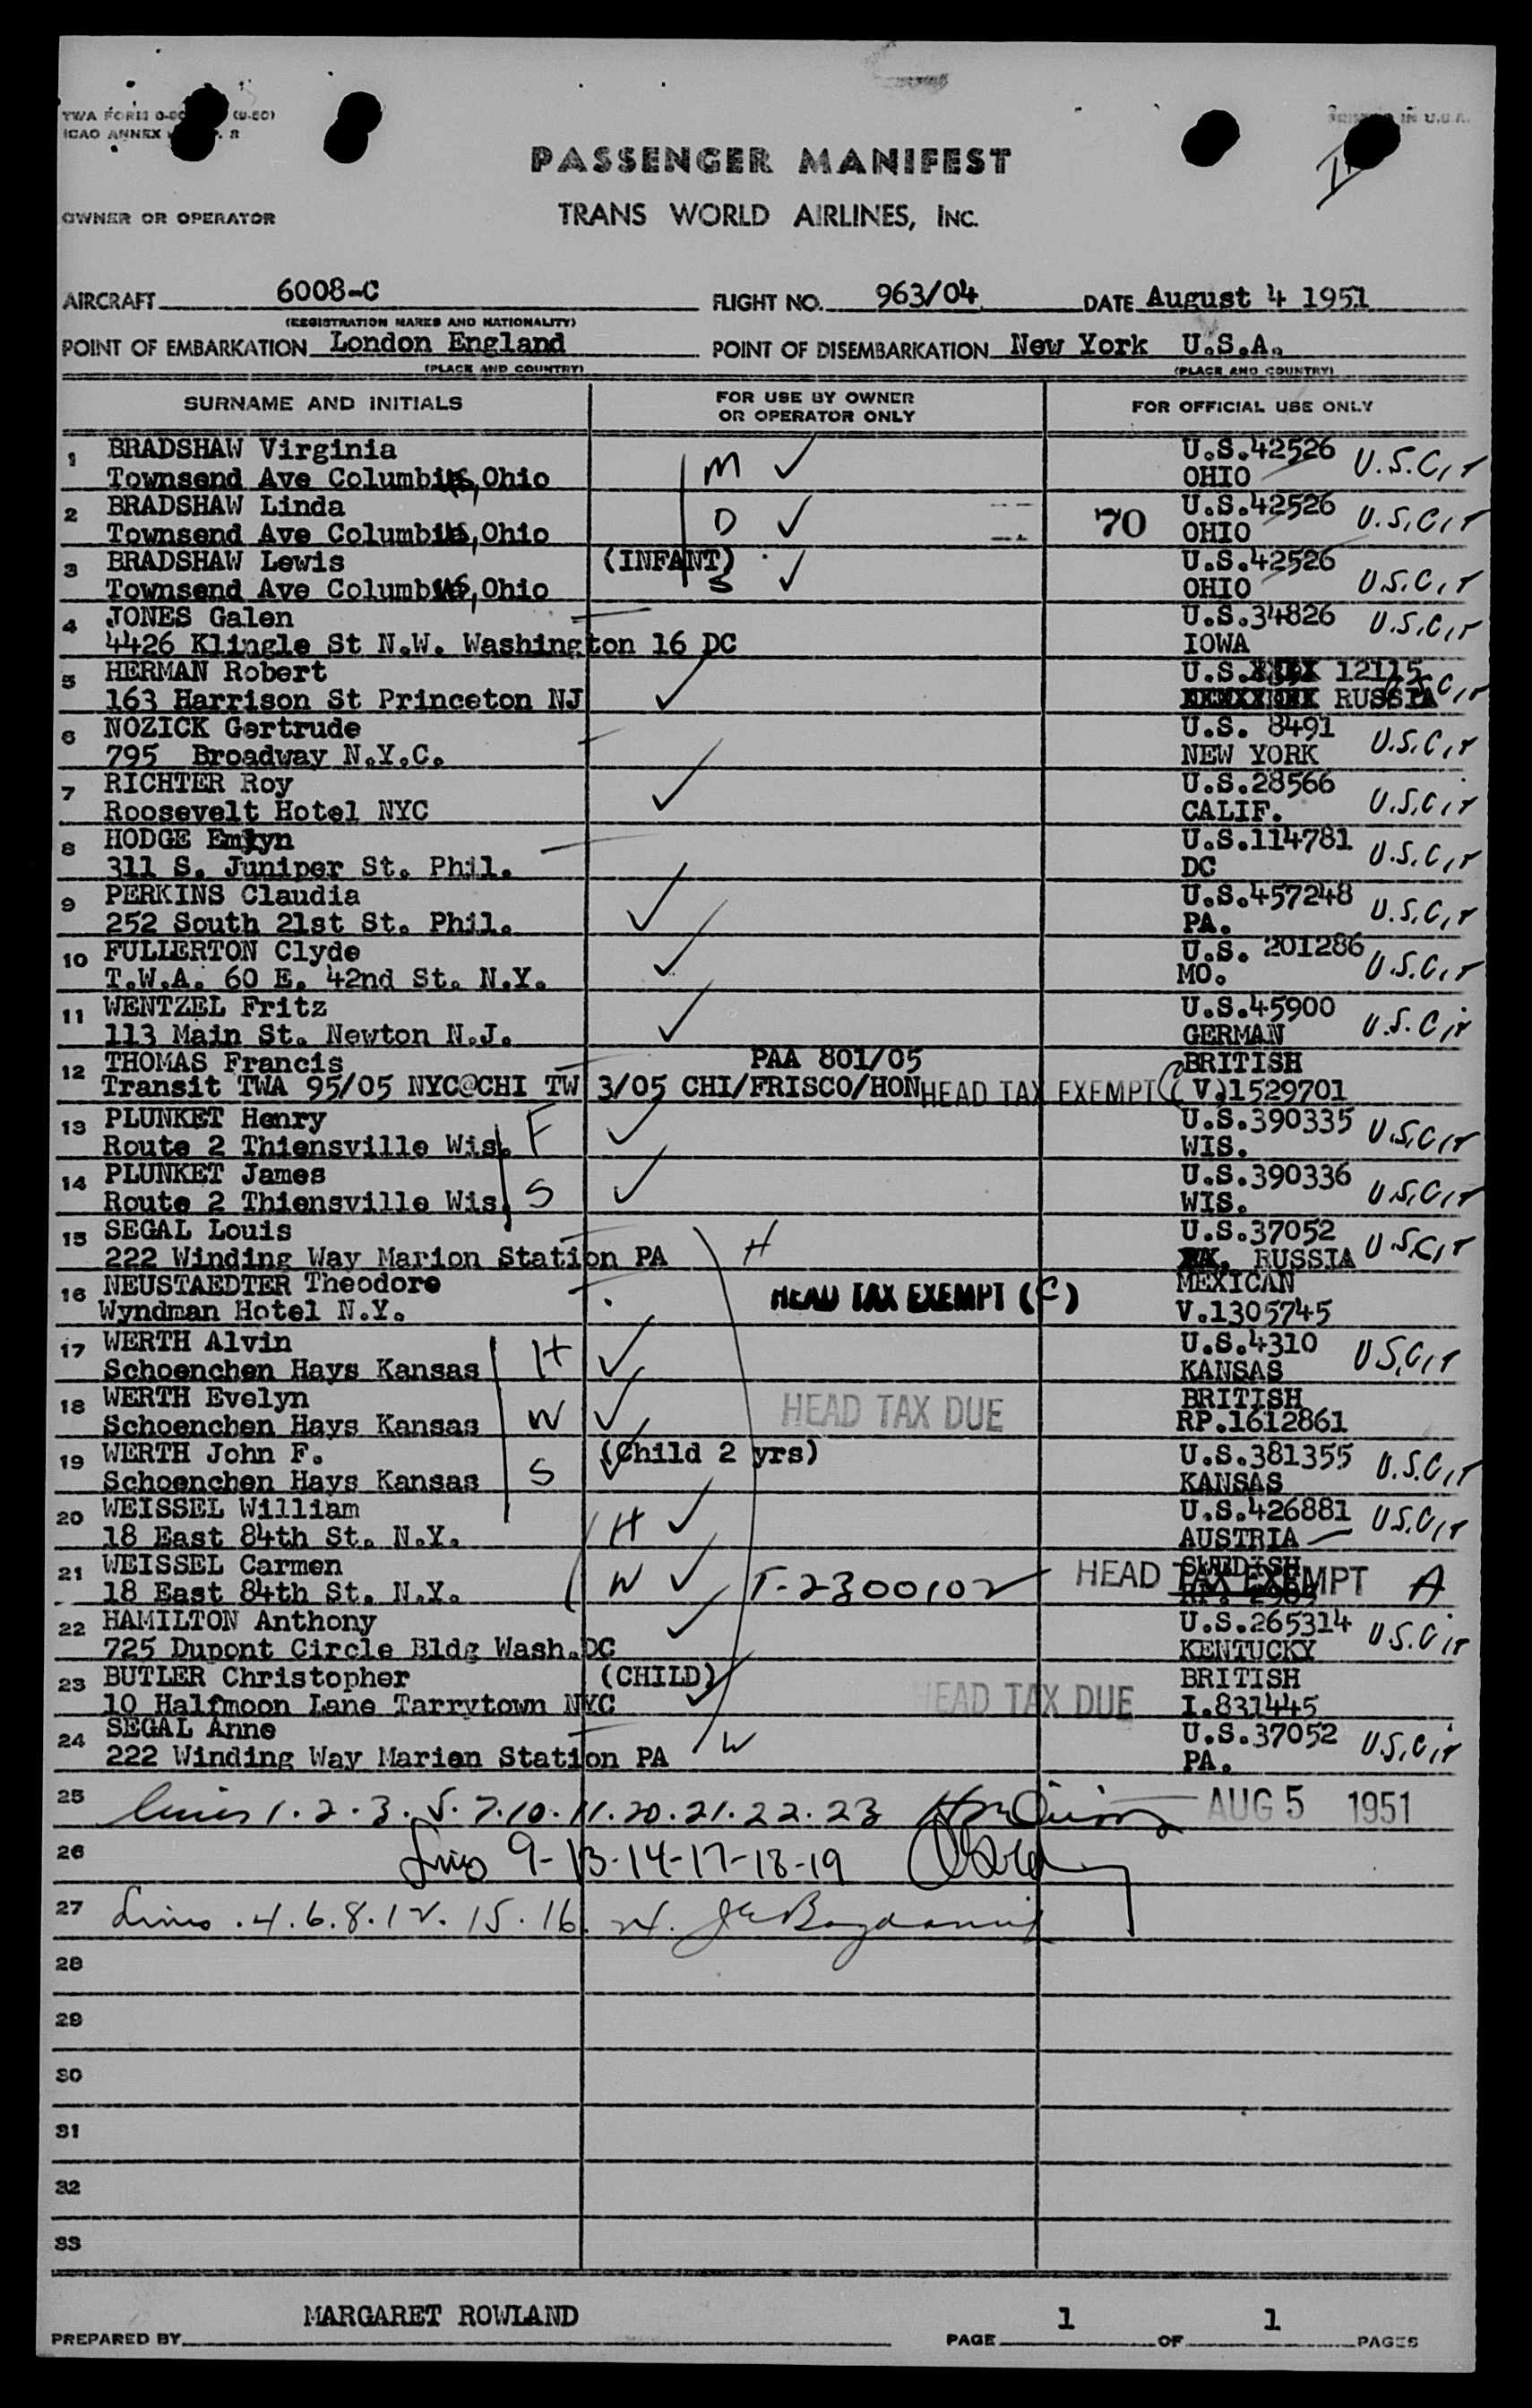 TWA FORM (9-50)
ICAO ANNEX
IN U.S.A.
PASSENGER MANIFEST
OWNER OR OPERATOR TRANS WORLD AIRLINES, INC.
AIRCRAFT 6008-C FLIGHT NO. 963/04 DATE August 4 1951
(REGISTRATION MARKS AND NATIONALITY)
POINT OF EMBARKATION London England POINT OF DISEMBARKATION New York U.S.A.
(PLACE AND COUNTRY) (PLACE AND COUNTRY)
SURNAME AND INITIALS FOR USE BY OWNER OR OPERATOR ONLY FOR OFFICIAL USE ONLY
1 BRADSHAW Virginia M ✓ U.S.42526 U.S.Cit
Townsend Ave Columbus, Ohio OHIO
2 BRADSHAW Linda D ✓ 70 U.S.42526 U.S.Cit
Townsend Ave Columbus, Ohio OHIO
3 BRADSHAW Lewis (INFANT) S ✓ U.S.42526 U.S.Cit
Townsend Ave Columbus, Ohio OHIO
4 JONES Galen U.S.34826 U.S.Cit
4426 Klingle St N.W. Washington 16 DC IOWA
5 HERMAN Robert ✓ U.S. 12115
163 Harrison St Princeton NJ RUSSIA
6 NOZICK Gertrude U.S. 8491 U.S.Cit
795 Broadway N.Y.C. NEW YORK
7 RICHTER Roy ✓ U.S.28566 U.S.Cit
Roosevelt Hotel NYC CALIF.
8 HODGE Emlyn U.S.114781 U.S.Cit
311 S. Juniper St. Phil. DC
9 PERKINS Claudia ✓ U.S.457248 U.S.Cit
252 South 21st St. Phil. PA.
10 FULLERTON Clyde ✓ U.S. 201286 U.S.Cit
T.W.A. 60 E. 42nd St. N.Y. MO.
11 WENTZEL Fritz ✓ U.S.45900 U.S.Cit
113 Main St. Newton N.J. GERMAN
12 THOMAS Francis PAA 801/05 BRITISH
Transit TWA 95/05 NYC@CHI TW 3/05 CHI/FRISCO/HON HEAD TAX EXEMPT (C V.)1529701
13 PLUNKET Henry F ✓ U.S.390335 U.S.Cit
Route 2 Thiensville Wis. WIS.
14 PLUNKET James S ✓ U.S.390336 U.S.Cit
Route 2 Thiensville Wis. WIS.
15 SEGAL Louis H U.S.37052 U.S.Cit
222 Winding Way Marion Station PA RUSSIA
16 NEUSTAEDTER Theodore HEAD TAX EXEMPT (C) MEXICAN
Wyndman Hotel N.Y. V.1305745
17 WERTH Alvin H ✓ U.S.4310 U.S.Cit
Schoenchen Hays Kansas KANSAS
18 WERTH Evelyn W ✓ HEAD TAX DUE BRITISH
Schoenchen Hays Kansas RP.1612861
19 WERTH John F. S ✓ (Child 2 yrs) U.S.381355 U.S.Cit
Schoenchen Hays Kansas KANSAS
20 WEISSEL William H ✓ U.S.426881 U.S.Cit
18 East 84th St. N.Y. AUSTRIA
21 WEISSEL Carmen W ✓ T-2300102 HEAD TAX EXEMPT A SWEDISH
18 East 84th St. N.Y.
22 HAMILTON Anthony ✓ U.S.265314 U.S.Cit
725 Dupont Circle Bldg Wash.DC KENTUCKY
23 BUTLER Christopher (CHILD) ✓ HEAD TAX DUE BRITISH
10 Halfmoon Lane Tarrytown NYC I.831445
24 SEGAL Anne W U.S.37052 U.S.Cit
222 Winding Way Marion Station PA PA.
25 Lines 1.2.3.5.7.10.11.20.21.22.23 AUG 5 1951
26 Lines 9-13-14-17-18-19
27 Lines .4.6.8.12.15.16.24.
28
29
30
31
32
33
PREPARED BY MARGARET ROWLAND PAGE 1 OF 1 PAGES